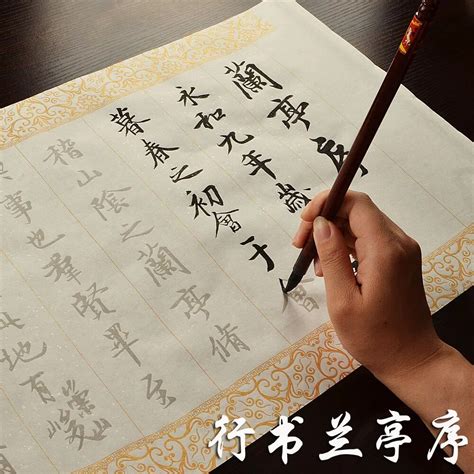 蘭亭序
永和九年歲
暮春之初會于會
稽山陰之蘭亭脩
事也羣賢畢至
地有崇山峻
行书兰亭序